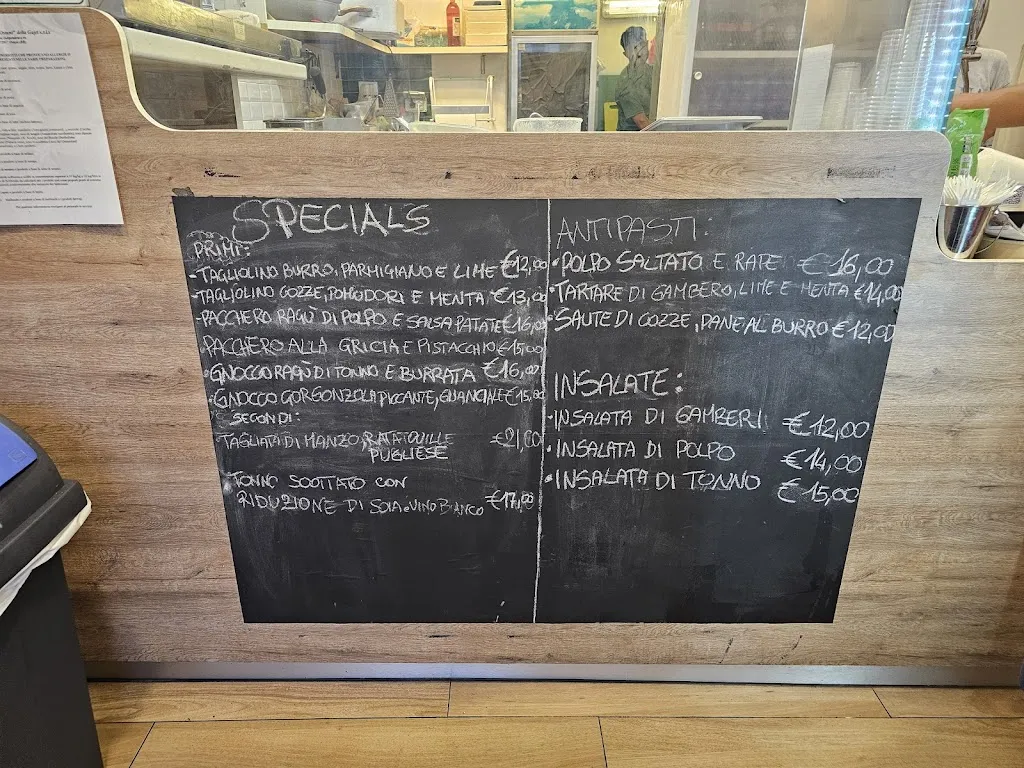 SPECIALS
PRIMI:
• TAGLIOLINO BURRO, PARMIGIANO E LIME €12,00
• TAGLIOLINO COZZE, POMODORI E MENTA €13,00
- PACCHERO RAGÙ DI POLPO E SALSA PATATE €16,00
PACCHERO ALLA GRICIA E PISTACCHIO €15,00
• GNOCCO RAGÙ DI TONNO E BURRATA €16,00
• GNOCCO GORGONZOLA PICCANTE, GUANCIALE €15,00
SECONDI:
TAGLIATA DI MANZO, RATATOUILLE €21,00
PUGLIESE
TONNO SCOTTATO CON
RIDUZIONE DI SOIA e VINO BIANCO €17,00
ANTIPASTI:
• POLPO SALTATO E RAPE €16,00
• TARTARE DI GAMBERO, LIME E MENTA €14,00
• SAUTE DI COZZE, PANE AL BURRO €12,00
INSALATE:
• INSALATA DI GAMBERI €12,00
• INSALATA DI POLPO €14,00
• INSALATA DI TONNO €15,00